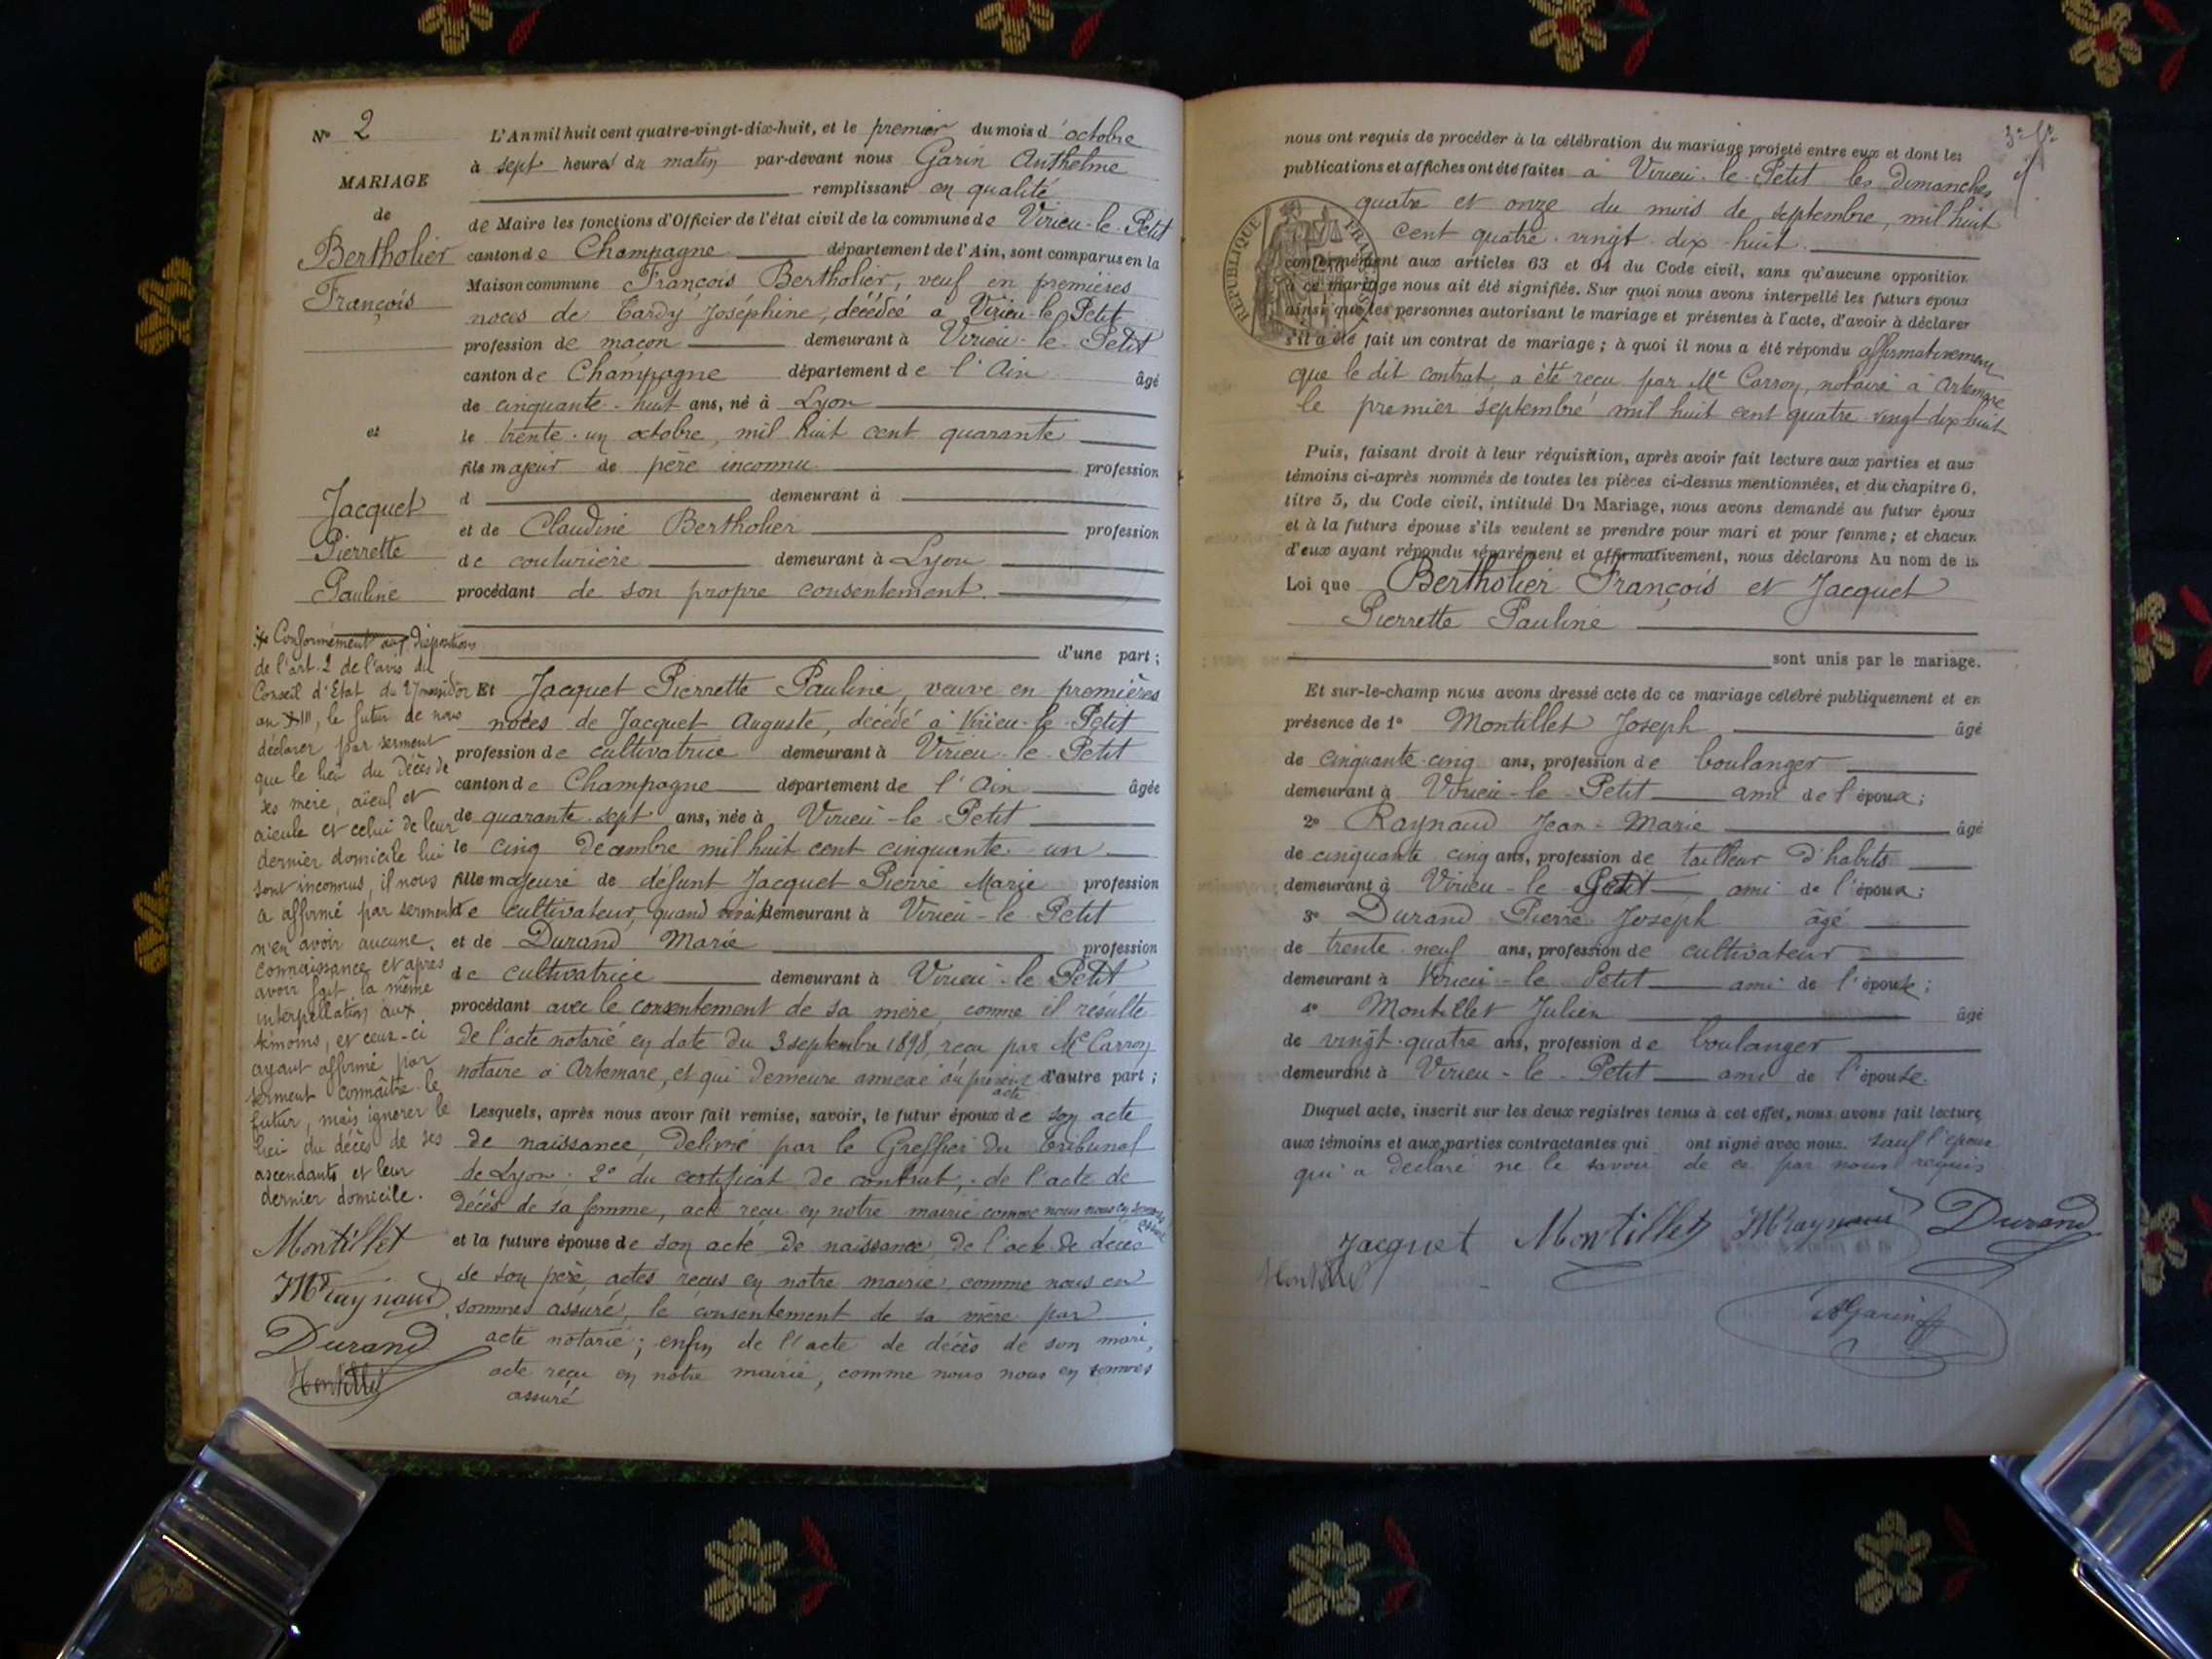 N° 2
MARIAGE
de
Bertholier
François
et
Jacquet
Pierrette
Pauline
Conformément aux dispositions
de l'art. 2 de l'avis du
Conseil d'Etat du 4 thermidor
an XIII, le futur de nous
déclarer par serment
que le lieu du décès de
ses mère, aïeul et
aïeule et celui de leur
dernier domicile lui
sont inconnus, il nous
a affirmé par serment
n'en avoir aucune
connaissance et après
avoir fait la même
interpellation aux
témoins, et ceux-ci
ayant affirmé par
serment connaître le
futur, mais ignorer le
lieu du décès de ses
ascendants et leur
dernier domicile.
Montillet
JMRaynaud
Durand
Montillet
L'An mil huit cent quatre-vingt-dix-huit, et le premier du mois d'octobre
à sept heures du matin par-devant nous Garin Anthelme
remplissant en qualité
de Maire les fonctions d'Officier de l'état civil de la commune de Virieu-le-Petit
canton de Champagne département de l'Ain, sont comparus en la
Maison commune François Bertholier, veuf en premières
noces de Tardy Joséphine, décédée à Virieu-le-Petit
profession de maçon demeurant à Virieu-le-Petit
canton de Champagne département de l'Ain âgé
de cinquante-huit ans, né à Lyon
le trente-un octobre, mil huit cent quarante
fils majeur de père inconnu profession
d demeurant à
et de Claudine Bertholier profession
de couturière demeurant à Lyon
procédant de son propre consentement.
d'une part;
Et Jacquet Pierrette Pauline, veuve en premières
noces de Jacquet Auguste, décédé à Virieu-le-Petit
profession de cultivatrice demeurant à Virieu-le-Petit
canton de Champagne département de l'Ain âgée
de quarante-sept ans, née à Virieu-le-Petit
le cinq décembre mil huit cent cinquante-un
fille majeure de défunt Jacquet Pierre Marie profession
de cultivateur, quand vivait demeurant à Virieu-le-Petit
et de Durand Marie profession
de cultivatrice demeurant à Virieu-le-Petit
procédant avec le consentement de sa mère, comme il résulte
de l'acte notarié en date du 3 septembre 1898, reçu par Me Carron
notaire à Artemare, et qui demeure annexé au présent acte d'autre part;
Lesquels, après nous avoir fait remise, savoir, le futur époux de son acte
de naissance, délivré par le Greffier du Tribunal
de Lyon; 2° du certificat de contrat; de l'acte de
décès de sa femme, acte reçu en notre mairie comme nous nous en sommes assuré
et la future épouse de son acte de naissance, de l'acte de décès
de son père, actes reçus en notre mairie, comme nous en
sommes assuré, le consentement de sa mère par
acte notarié; enfin de l'acte de décès de son mari,
acte reçu en notre mairie, comme nous nous en sommes
assuré
nous ont requis de procéder à la célébration du mariage projeté entre eux et dont les
publications et affiches ont été faites à Virieu-le-Petit les dimanches
quatre et onze du mois de septembre, mil huit
cent quatre-vingt-dix-huit.
RÉPUBLIQUE FRANÇAISE
conformément aux articles 63 et 64 du Code civil, sans qu'aucune opposition
à ce mariage nous ait été signifiée. Sur quoi nous avons interpellé les futurs époux
ainsi que les personnes autorisant le mariage et présentes à l'acte, d'avoir à déclarer
s'il a été fait un contrat de mariage; à quoi il nous a été répondu affirmativement
que le dit contrat a été reçu par Me Carron, notaire à Artemare
le premier septembre mil huit cent quatre-vingt-dix-huit
Puis, faisant droit à leur réquisition, après avoir fait lecture aux parties et aux
témoins ci-après nommés de toutes les pièces ci-dessus mentionnées, et du chapitre 6,
titre 5, du Code civil, intitulé Du Mariage, nous avons demandé au futur époux
et à la future épouse s'ils veulent se prendre pour mari et pour femme; et chacun
d'eux ayant répondu séparément et affirmativement, nous déclarons Au nom de la
Loi que Bertholier François et Jacquet
Pierrette Pauline
sont unis par le mariage.
Et sur-le-champ nous avons dressé acte de ce mariage célébré publiquement et en
présence de 1° Montillet Joseph âgé
de cinquante-cinq ans, profession de boulanger
demeurant à Virieu-le-Petit ami de l'époux;
2° Raynaud Jean-Marie âgé
de cinquante cinq ans, profession de tailleur d'habits
demeurant à Virieu-le-Petit ami de l'époux;
3° Durand Pierre Joseph âgé
de trente-neuf ans, profession de cultivateur
demeurant à Virieu-le-Petit ami de l'épouse;
4° Montillet Julien âgé
de vingt-quatre ans, profession de boulanger
demeurant à Virieu-le-Petit ami de l'épouse.
Duquel acte, inscrit sur les deux registres tenus à cet effet, nous avons fait lecture
aux témoins et aux parties contractantes qui ont signé avec nous. sauf l'époux
qui a déclaré ne le savoir de ce par nous requis
Jacquet Montillet JMRaynaud Durand
Montillet
AGarin